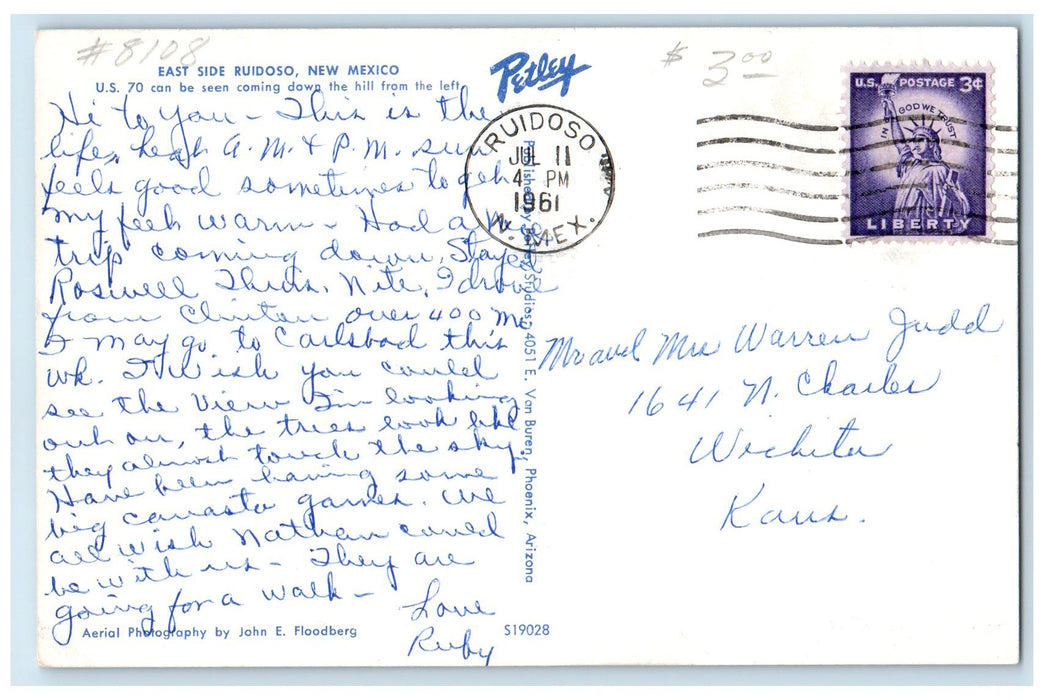 #8108
EAST SIDE RUIDOSO, NEW MEXICO
U.S. 70 can be seen coming down the hill from the left
Hi to you - This is the
life, A.M. & P.M. sun
feels good sometimes to get
my feet warm - Had a
trip coming down, Stayed
Roswell Thurs. Nite, I drove
from Clinton over 400 mi
I may go to Carlsbad this
wk. I wish you could
see the view I'm looking
out on, the trees look like
they almost touch the sky.
Have been having some
big canasta games. We
all wish Nathan could
be with us - They are
going for a walk -
Love
Ruby
Aerial Photography by John E. Floodberg
S19028
Petley
Published by Petley Studios, 4051 E. Van Buren, Phoenix, Arizona
RUIDOSO
JUL 11
4 PM
1961
N. MEX.
$ 3.00
U.S. POSTAGE 3¢
IN GOD WE TRUST
LIBERTY
Mr and Mrs Warren Judd
1641 N. Charles
Wichita
Kans.